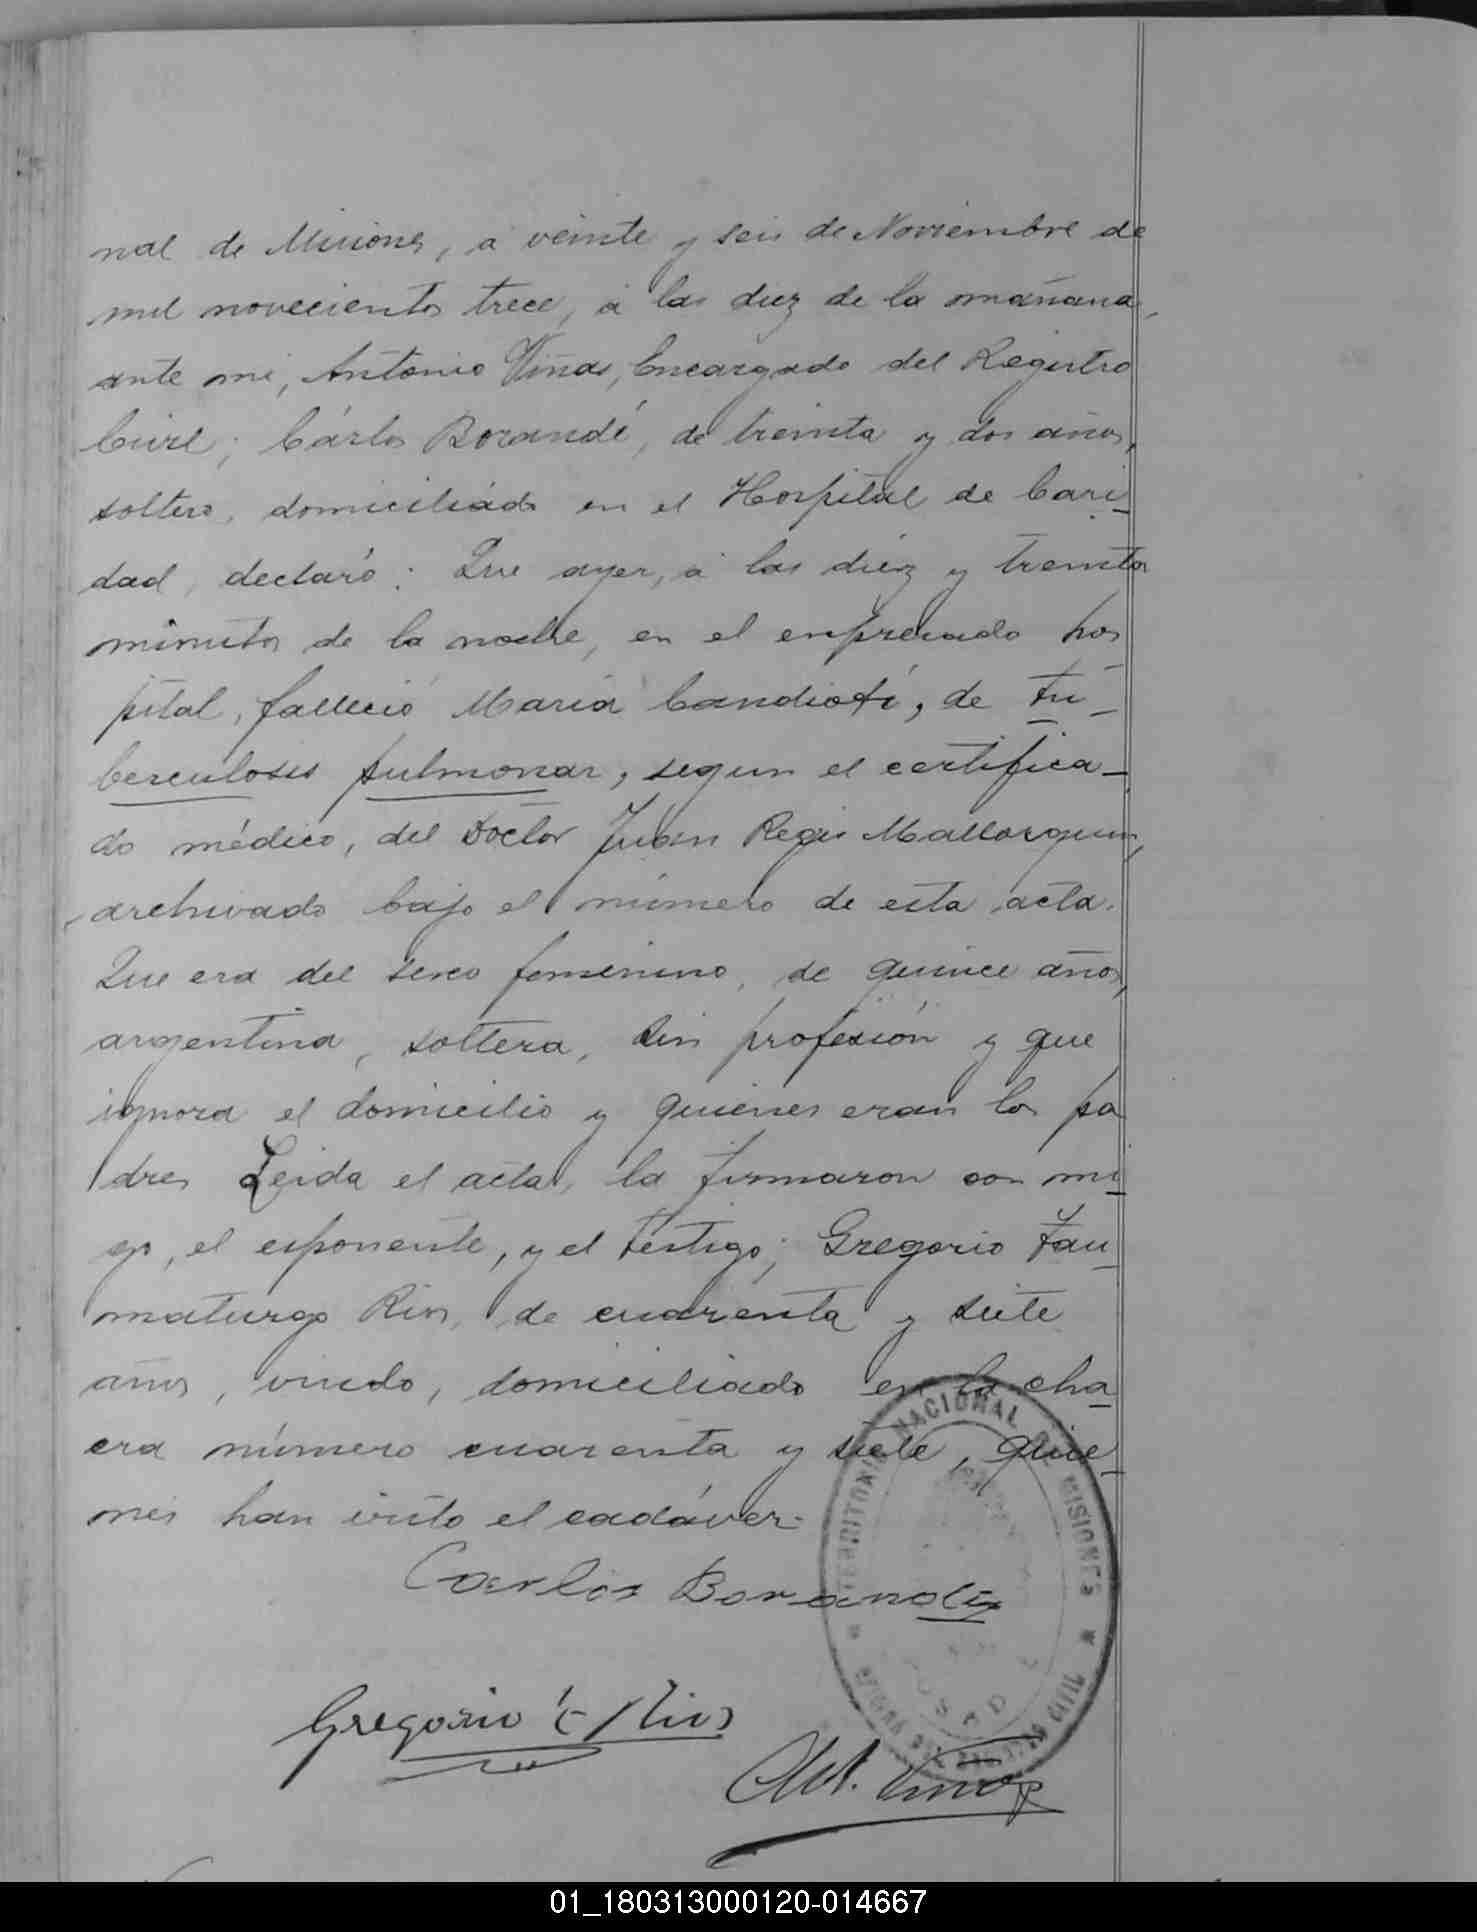 nal de Misiones, á veinte y seis de Noviembre de
mil novecientos trece, á las diez de la mañana,
ante mi, Antonio Viñas, Encargado del Registro
Civil; Cárlos Borandé, de treinta y dos años,
soltero, domiciliádo en el Hospital de Cari_
dad, declaró: Que ayer, á las diéz y treinta
minutos de la noche, en el enpresado hos
pital, falleció María Candioti, de tu_
berculosis pulmonar, segun el certifica_
do médico, del Doctor Juán Regis Mallorquin,
archivado bajo el número de esta acta.
Que era del sexo femenino, de quince años,
argentina, soltera, sin profesión y que
ignora el domicilio y quienes eran los pa
dres Leida el acta, la firmaron con mi_
go, el esponente, y el testigo; Gregorio Tau_
maturgo Rios, de cuarenta y siete
años, viudo, domiciliado en la cha_
cra número cuarenta y siete, quie_
nes han visto el cadáver.
Carlos Borandé
Gregorio T Rios
Ant. Viñas
TERRITORIO NACIONAL DE MISIONES
OFICINA DEL REGISTRO CIVIL
POSADAS
01_180313000120-014667